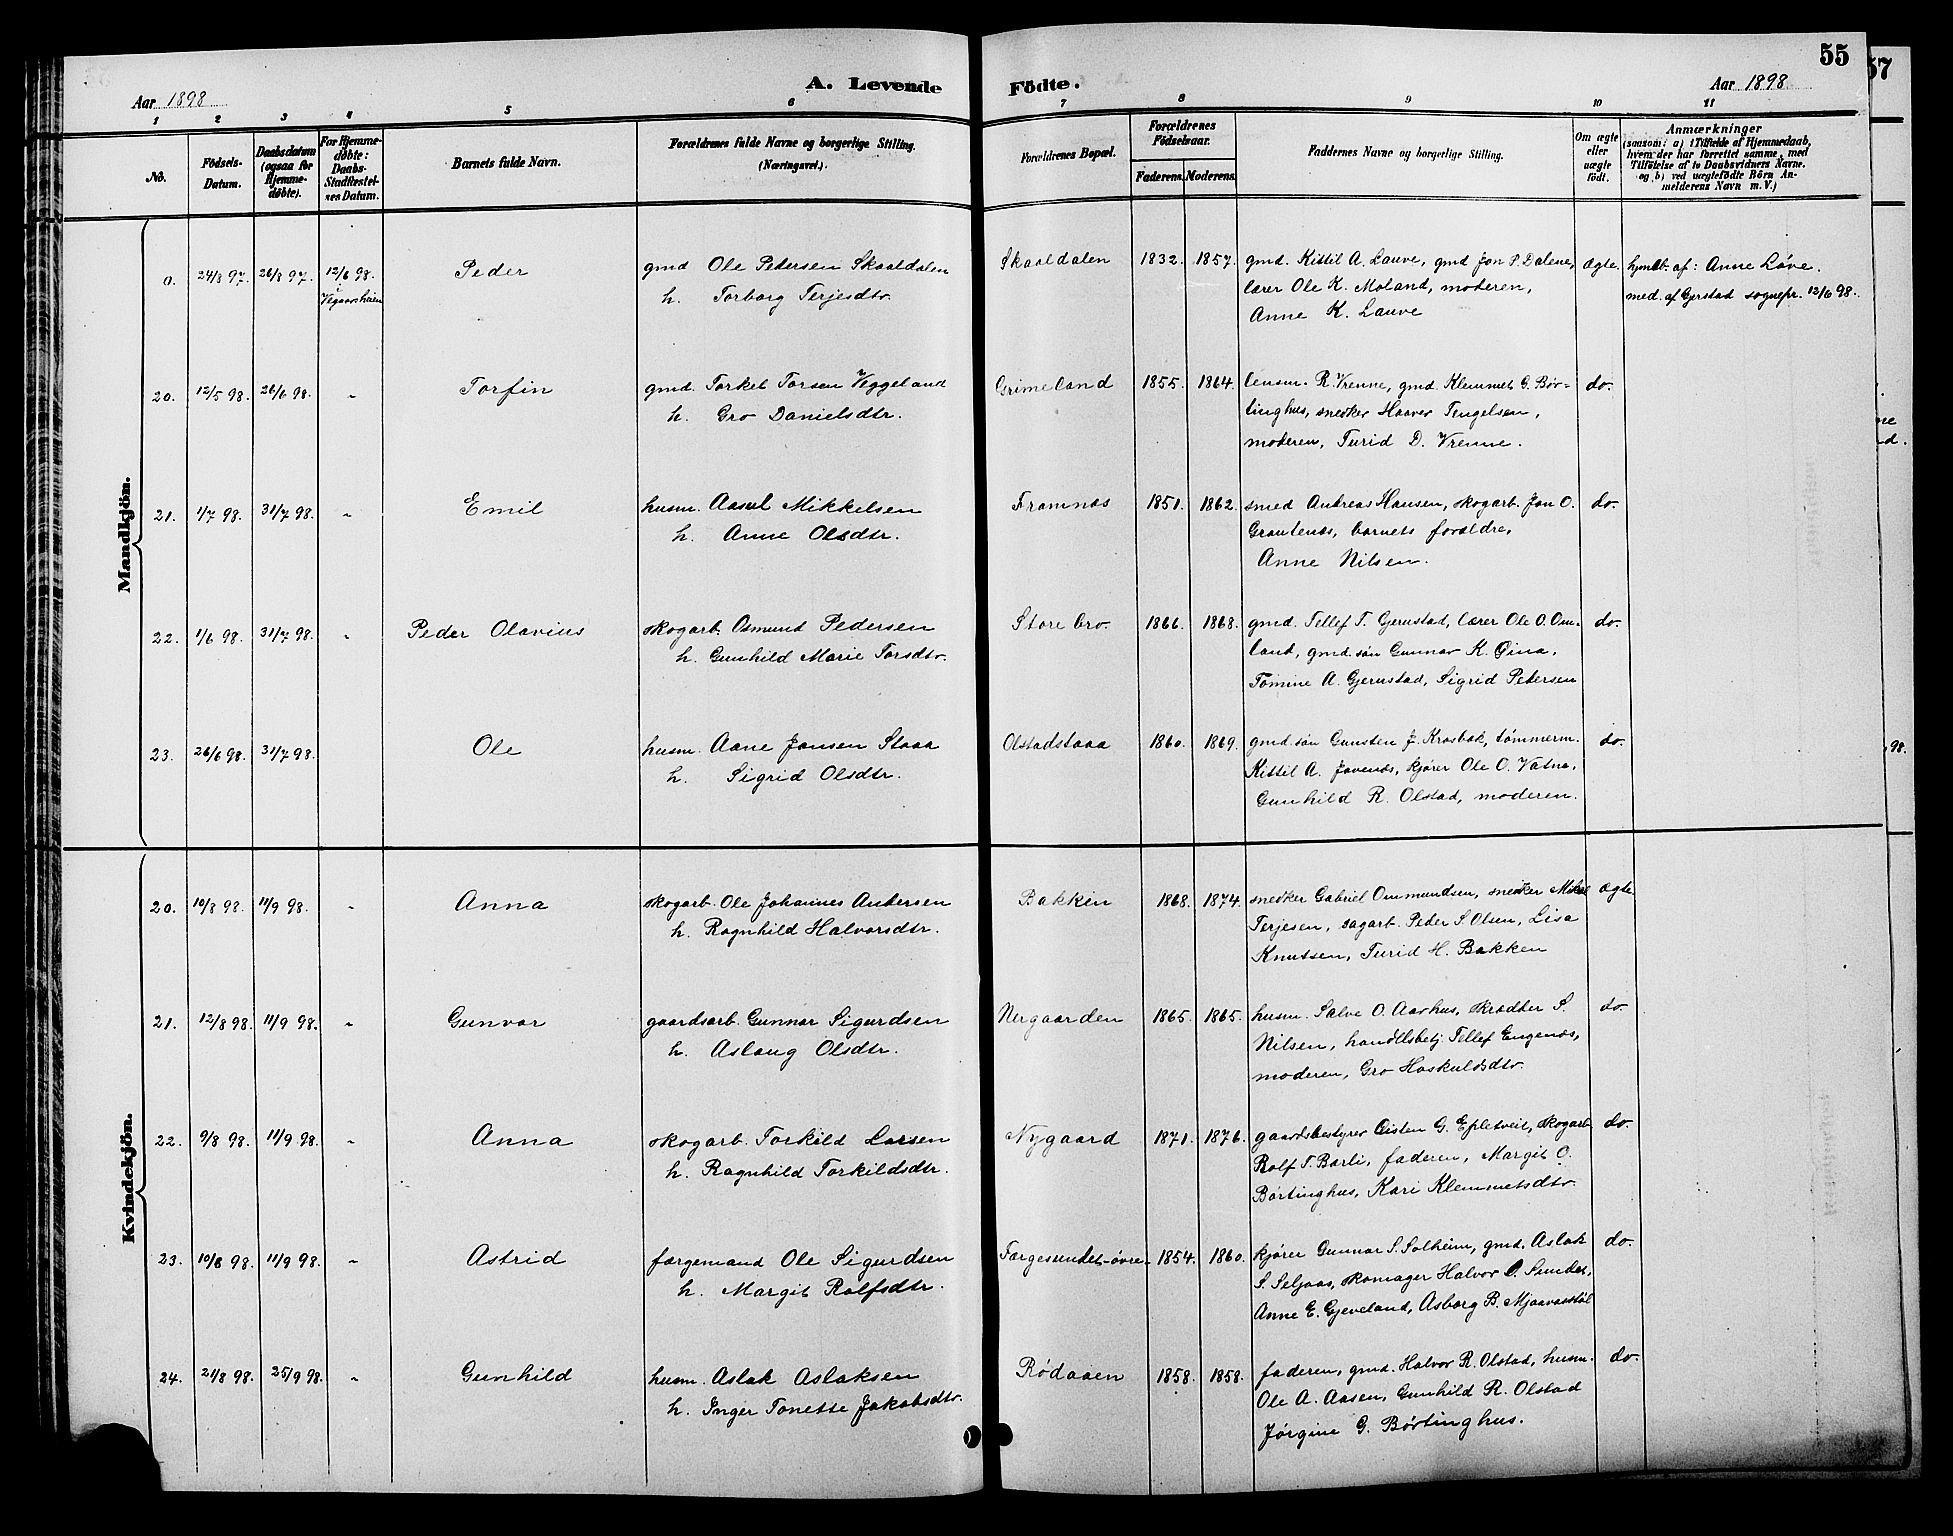 55
57
A. Levende Födte.
Aar 1898
Aar 1898
1 2 3 4 5 6 7 8 9 10 11
No.
Födsels-Datum.
Daabsdatum (ogsaa for Hjemme-døbte).
For Hjemme-døbte: Daabs-Stadfæstel-sens Datum.
Barnets fulde Navn.
Forældrenes fulde Navne og borgerlige Stilling. (Næringsvei.)
Forældrenes Bopæl.
Forældrenes Födselsaar.
Faderens. Moderens.
Faddernes Navne og borgerlige Stilling.
Om ægte eller uægte født.
Anmærkninger
(saasom: a) i Tilfælde af Hjemmedaab, hvem der har forrettet samme, med Tilføielse af to Daabsvidners Navne. og b) ved uægtefödte Börn An-melderens Navn m. V.)
Mandkjön.
0. 24/8 97. 26/8 97. 12/6 98. Peder gmd Ole Pedersen Skaaldalen Skaaldalen 1832. 1857. gmd. Kittil A. Lauve, gmd Jon P. Dalene, ægte. hjmdb. af: Anne Løve.
Vegaarsheien h. Torborg Terjesdtr. lærer Ole K. Moland, moderen, med. af Gjerstad sognepr. 12/6 98.
Anne K. Lauve
20. 12/5 98. 26/6 98. " Torfin gmd. Torkel Torsen Veggeland Grimeland 1855. 1864. lensm. R. Vrenne, gmd. Klemmet G. Bør- do.
h. Gro Danielsdtr. tinghus, snedker Haaver Tengelsen,
moderen, Turid D. Vrenne.
21. 1/7 98. 31/7 98. " Emil husm. Aasul Mikkelsen Framnæs 1851. 1862. smed Andreas Hansen, skogarb. Jon O. do.
h. Anne Olsdtr. Grautenæs, barnets forældre,
Anne Nilsen.
22. 1/6 98. 31/7 98. " Peder Olavius skogarb. Osmund Pedersen Storebro 1866. 1868. gmd. Tellef T. Gjerustad, lærer Ole O. Om- do.
h. Gunhild Marie Torsdtr. land, gmd. søn Gunnar K. Eina,
Tomine A. Gjerustad, Sigrid Pedersen
23. 26/6 98. 31/7 98. Ole husm. Aane Jonsen Staaa Olstadstaaa 1860. 1869. gmd. søn Gunsten J. Krosbæk, tømmerm. do.
h. Sigrid Olsdtr. Kittil A. Jovenæs, kjører Ole O. Vatne,
Gunhild R. Olstad, moderen.
Kvindekjön.
20. 10/8 98. 11/9 98. " Anna skogarb. Ole Johannes Andersen Bakken 1868. 1874. snedker Gabriel Ommundsen, snedker Mikal ægte
h. Ragnhild Halvorsdtr. Terjesen, sagarb. Peder S. Olsen, Lisa
Knutsen, Turid H. Bakken
21. 12/8 98. 11/9 98. " Gunvor gaardsarb. Gunnar Sigurdsen Nergaarden 1865. 1865. husm. Salve O. Aarhus, skrædder S. do.
h. Aslaug Olsdtr. Nilsen, handelsbetj. Tellef Engenæs,
moderen, Gro Haskuldsdtr.
22. 9/8 98. 11/9 98. " Anna skogarb. Torkild Larsen Nygaard 1871. 1876. gaardsbestyrer Eisten G. Epletveit, skogarb. do.
h. Ragnhild Torkildsdtr. Rolf T. Barli, faderen, Margit O.
Børtinghus, Kari Klemmetsdtr.
23. 10/8 98. 11/9 98. " Astrid færgemand Ole Sigurdsen Færgesundet-øvre 1854. 1860. kjører Gunnar S. Solheim, gmd. Aslak do.
h. Margit Rolfsdtr. S. Seljaas, skomager Halvor O. Sundet,
Anne E. Gjeveland, Asborg B. Mjaavasstøl
24. 21/8 98. 25/9 98. " Gunhild husm. Aslak Aslaksen Rødaaen 1858. 1858. faderen, gmd. Halvor R. Olstad, husm. do.
h. Inger Tonette Jakobsdtr. Ole A. Aasen, Gunhild R. Olstad
Jørgine G. Børtinghus.